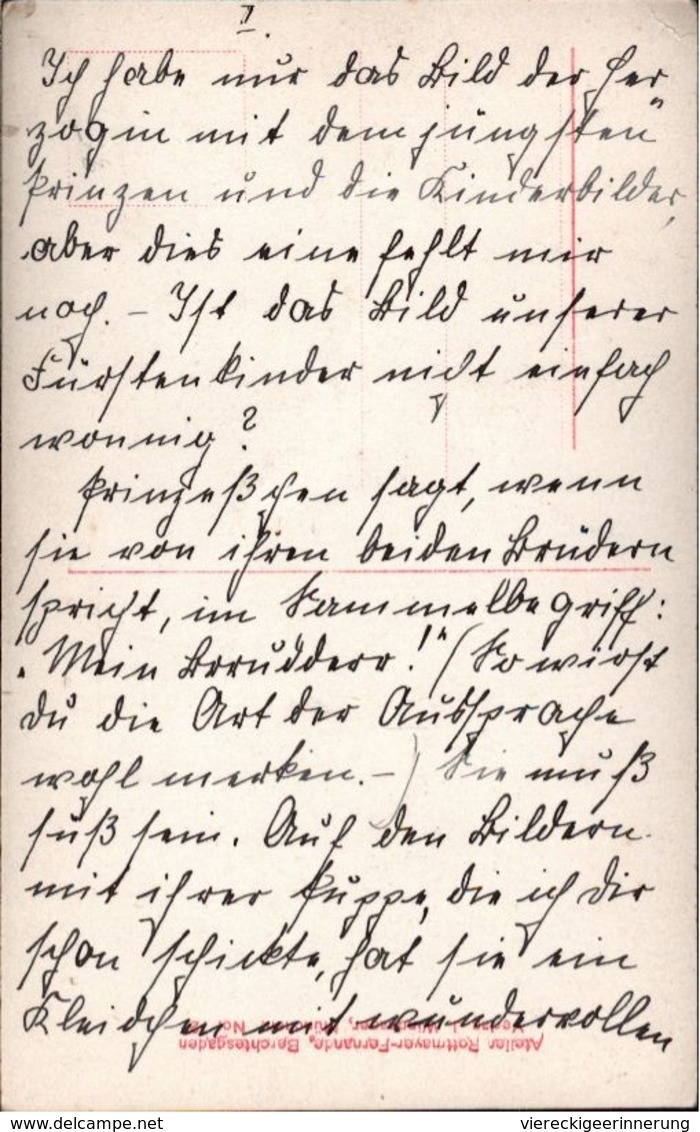 I.
Ich habe nur das Bild der Her„
zogin mit dem jüngsten
Prinzen und die Kinderbilder,
aber dies eine fehlt mir
noch. – Ist das Bild unserer
Fürstenkinder nicht einfach
wonnig?
Prinzeßchen sagt, wenn
sie von ihren beiden Brüdern
spricht, im Sammelbegriff:
„Mein Brrudderr!“ (So wirst
du die Art der Aussprache
wohl merken. –) Sie muß
süß sein. Auf den Bildern
mit ihrer Puppe, die ich Dir
schon schickte, hat sie ein
Kleidchen mit wundervollen
Atelier Rottmayer-Fernande, Berchtesgaden
delcampe.net
viereckigeerinnerung